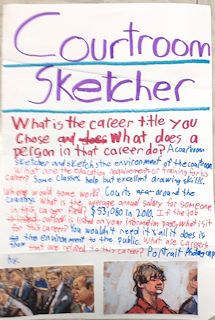 Courtroom
Sketcher
What is the career title you
chose and does What does a
person in that career do? A courtroom
sketcher and sketch the environment of the courtroom
What are the education requirements or training for this
career? Some classes help but excellent drawing skills.
Where would some work? Courts around the
country. What is the average annual salary for someone
in this career field? $53,080 in 2010. If the job
outlook is listed on your information page, what is it
for this career? You wouldn't need it all it does is
show the environment to the public. What are careers
that are related to this career? Portrait